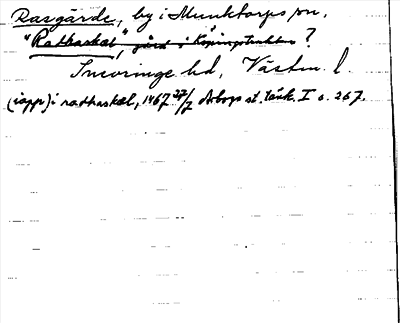 Rasgärde, by i Munktorps sn,
"Rathaskæl", gård i Köpingstrakten?
Snevringe hd, Västm. l.
(i app) i rathaskæl, 1467 27/7 Arboga st. tänk. I s. 267.